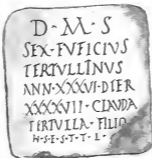 D · M · S
SEX · FVFICIVS
TERTVLLINVS
ANN · XXXVI · DIER
XXXXVII · CLAVDA
TERTVLLA · FILIO
H · S · E · S · T · T · L ·